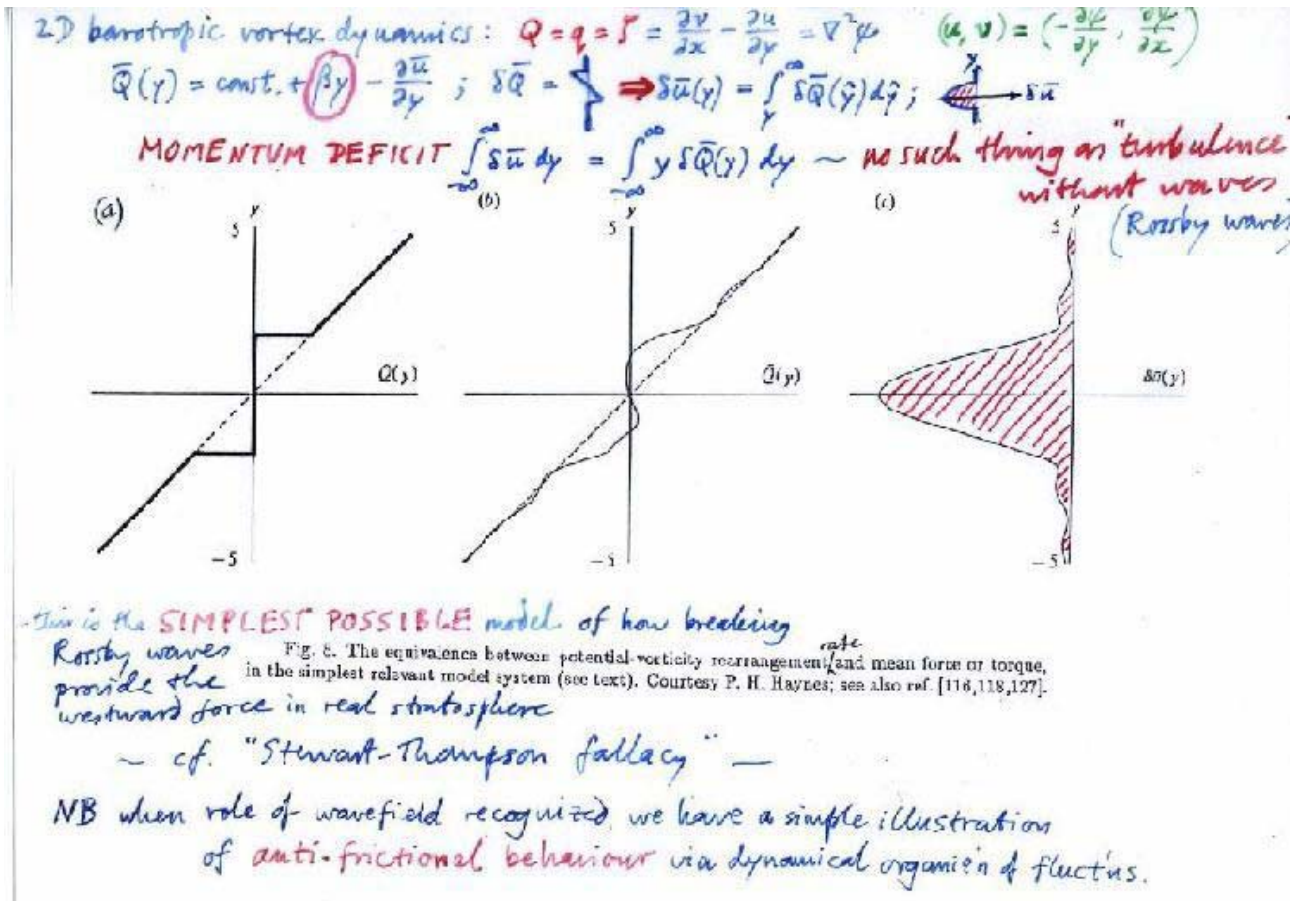 2D barotropic vortex dynamics: Q = q = ζ = ∂v/∂x − ∂u/∂y = ∇²ψ (u, v) = (−∂ψ/∂y, ∂ψ/∂x)
Q̄(y) = const. + βy − ∂ū/∂y ; δQ̄ = ⇒ δū(y) = ∫_y^∞ δQ̄(ŷ) dŷ ; y δū
MOMENTUM DEFICIT ∫_{-∞}^{∞} δū dy = ∫_{-∞}^{∞} y δQ̄(y) dy ~ no such thing as "turbulence
without waves
(Rossby waves)
(a) (b) (c)
y y y
5 5 5
Q(y) Q̄(y) δū(y)
−5 −5 −5
This is the SIMPLEST POSSIBLE model of how breaking
Rossby waves
provide the
westward force in real stratosphere
rate
Fig. 8. The equivalence between potential-vorticity rearrangement and mean force or torque,
in the simplest relevant model system (see text). Courtesy P. H. Haynes; see also ref. [116,118,127].
~ cf. "Stewart-Thompson fallacy" —
NB when role of wavefield recognized, we have a simple illustration
of anti-frictional behaviour via dynamical organis'n of fluct'ns.